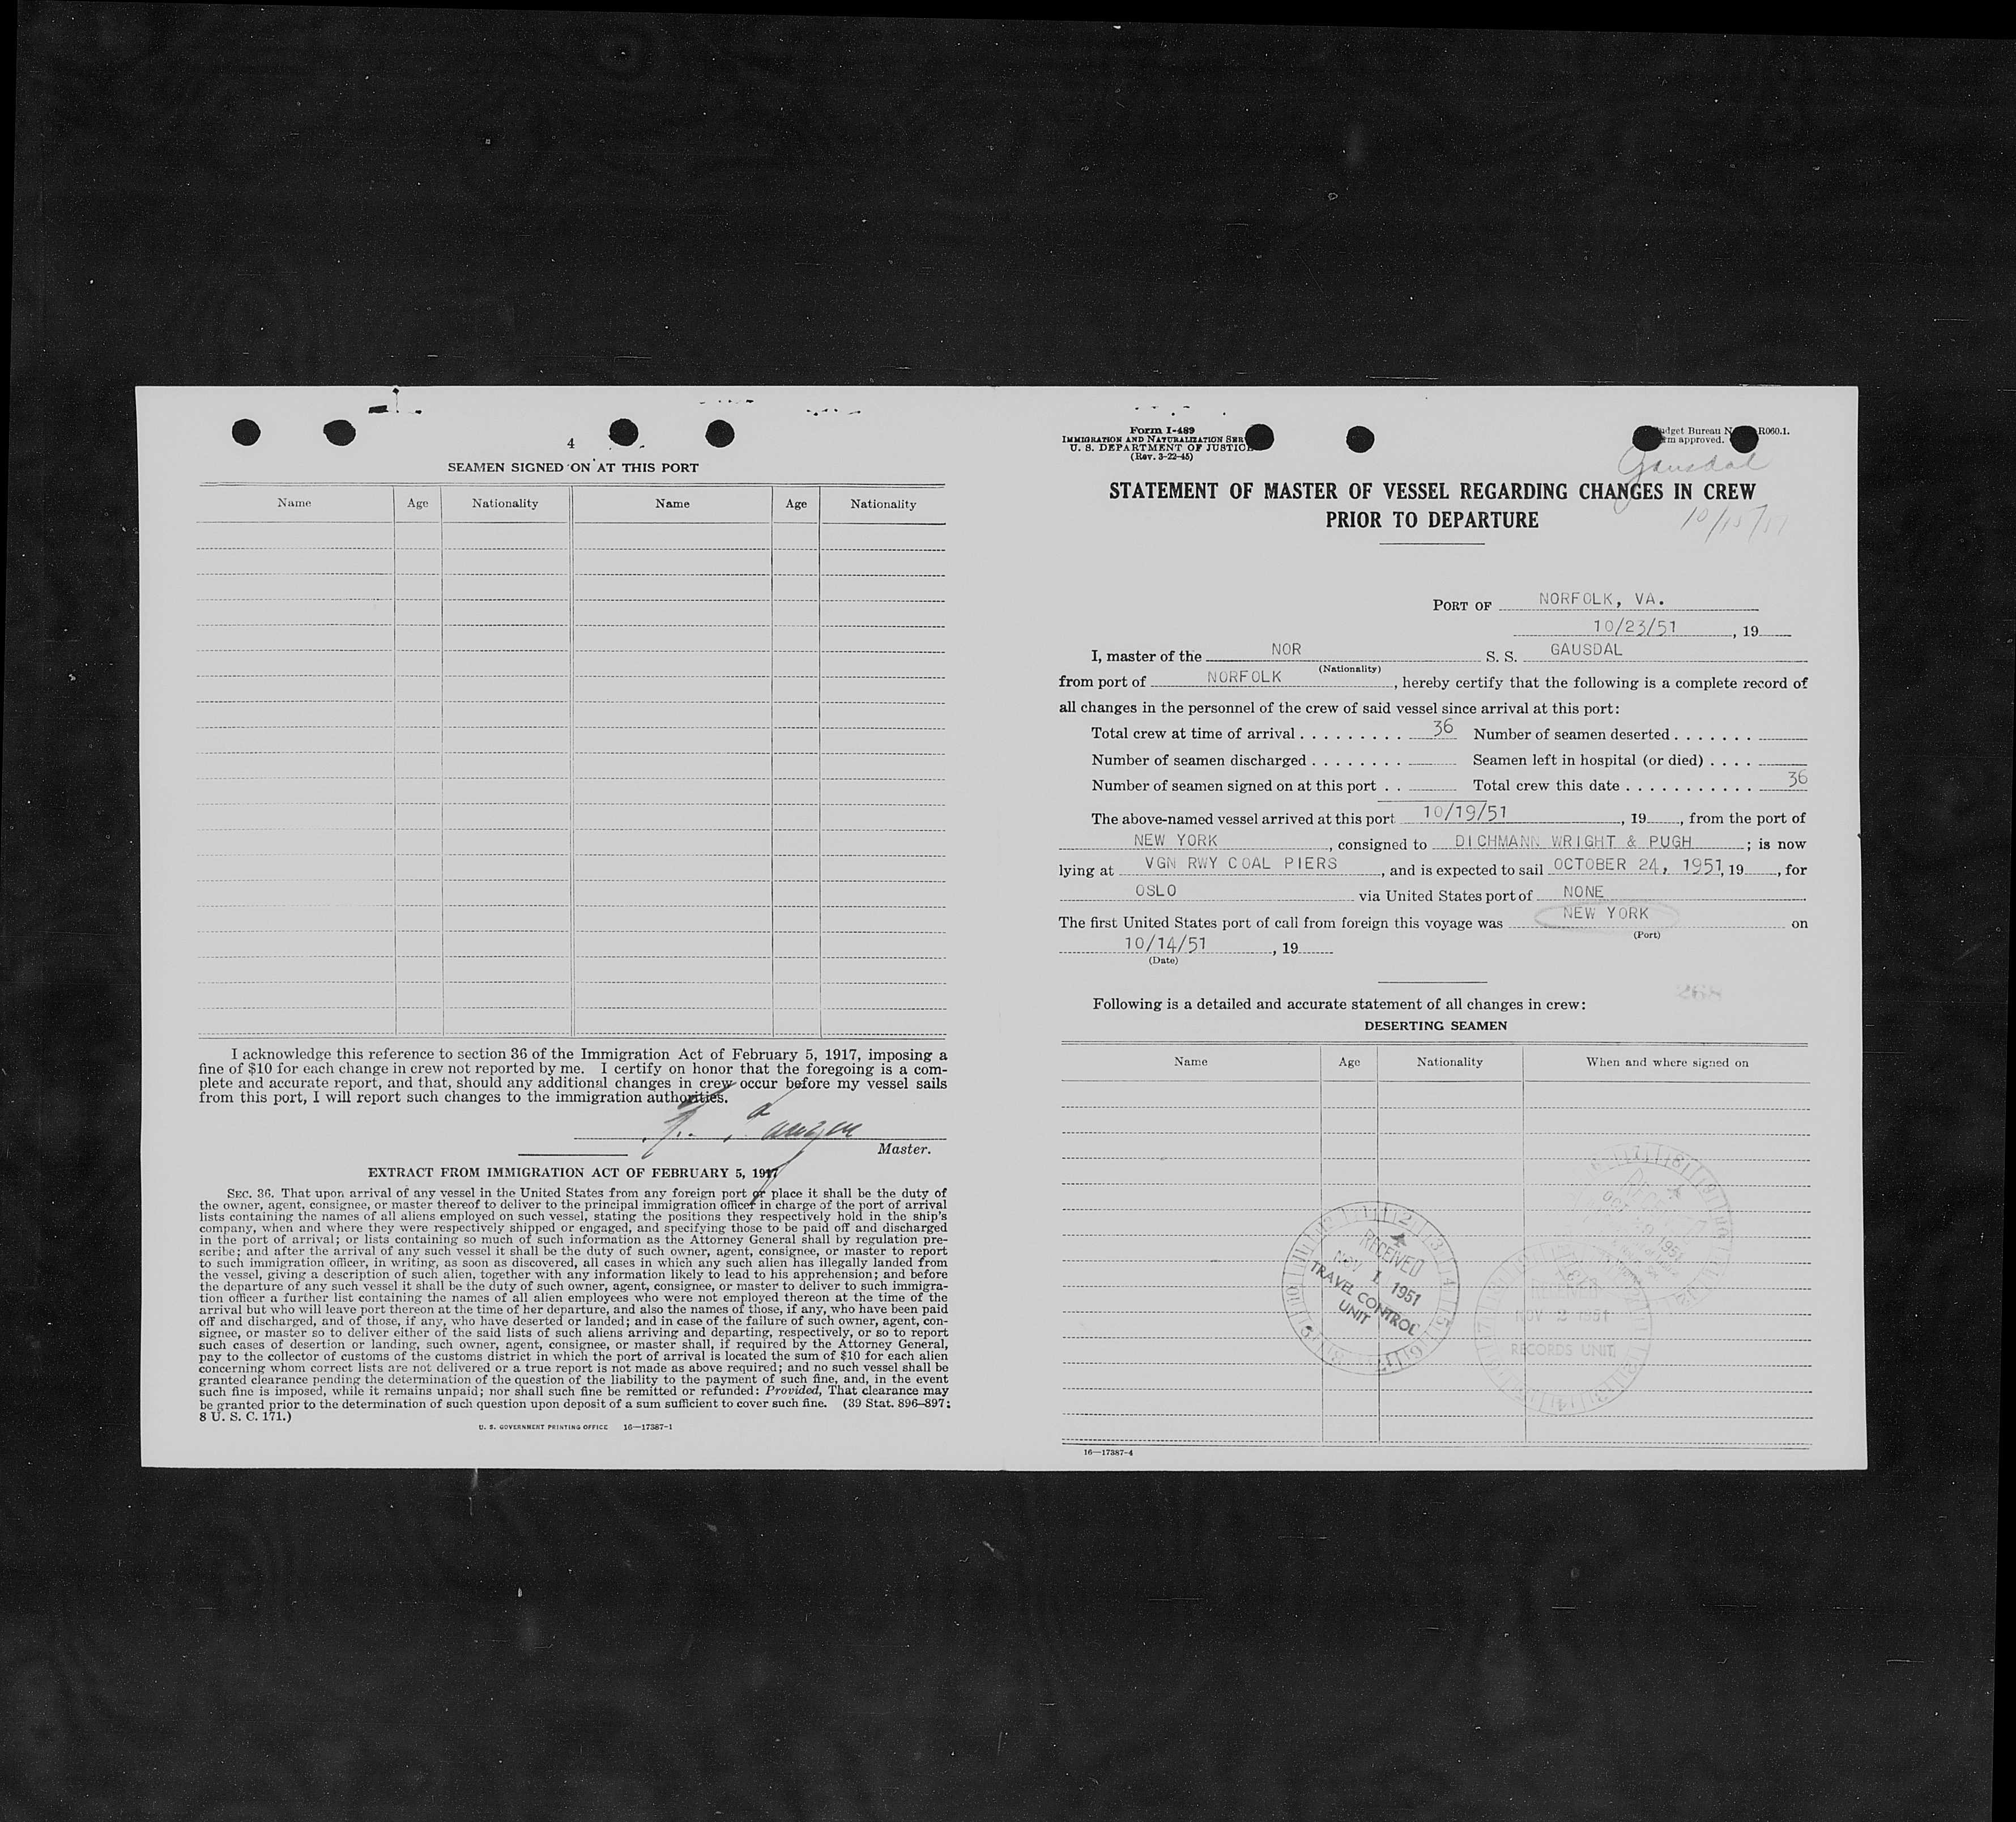 4
SEAMEN SIGNED ON AT THIS PORT
Name Age Nationality Name Age Nationality
I acknowledge this reference to section 36 of the Immigration Act of February 5, 1917, imposing a
fine of $10 for each change in crew not reported by me. I certify on honor that the foregoing is a com-
plete and accurate report, and that, should any additional changes in crew occur before my vessel sails
from this port, I will report such changes to the immigration authorities.
Master.
EXTRACT FROM IMMIGRATION ACT OF FEBRUARY 5, 1917
SEC. 36. That upon arrival of any vessel in the United States from any foreign port or place it shall be the duty of
the owner, agent, consignee, or master thereof to deliver to the principal immigration officer in charge of the port of arrival
lists containing the names of all aliens employed on such vessel, stating the positions they respectively hold in the ship's
company, when and where they were respectively shipped or engaged, and specifying those to be paid off and discharged
in the port of arrival; or lists containing so much of such information as the Attorney General shall by regulation pre-
scribe; and after the arrival of any such vessel it shall be the duty of such owner, agent, consignee, or master to report
to such immigration officer, in writing, as soon as discovered, all cases in which any such alien has illegally landed from
the vessel, giving a description of such alien, together with any information likely to lead to his apprehension; and before
the departure of any such vessel it shall be the duty of such owner, agent, consignee, or master to deliver to such immigra-
tion officer a further list containing the names of all alien employees who were not employed thereon at the time of the
arrival but who will leave port thereon at the time of her departure, and also the names of those, if any, who have been paid
off and discharged, and of those, if any, who have deserted or landed; and in case of the failure of such owner, agent, con-
signee, or master so to deliver either of the said lists of such aliens arriving and departing, respectively, or so to report
such cases of desertion or landing, such owner, agent, consignee, or master shall, if required by the Attorney General,
pay to the collector of customs of the customs district in which the port of arrival is located the sum of $10 for each alien
concerning whom correct lists are not delivered or a true report is not made as above required; and no such vessel shall be
granted clearance pending the determination of the question of the liability to the payment of such fine, and, in the event
such fine is imposed, while it remains unpaid; nor shall such fine be remitted or refunded: Provided, That clearance may
be granted prior to the determination of such question upon deposit of a sum sufficient to cover such fine. (39 Stat. 896–897;
8 U. S. C. 171.)
U. S. GOVERNMENT PRINTING OFFICE 16—17387-1
Form I-489
IMMIGRATION AND NATURALIZATION SER
U. S. DEPARTMENT OF JUSTICE
(Rev. 3-22-45)
dget Bureau N R060.1.
rm approved.
Gausdal
STATEMENT OF MASTER OF VESSEL REGARDING CHANGES IN CREW
PRIOR TO DEPARTURE
PORT OF NORFOLK, VA.
10/23/51, 19
I, master of the NOR S. S. GAUSDAL
(Nationality)
from port of NORFOLK, hereby certify that the following is a complete record of
all changes in the personnel of the crew of said vessel since arrival at this port:
Total crew at time of arrival . . . . . . . . . 36 Number of seamen deserted . . . . . . .
Number of seamen discharged . . . . . . . . Seamen left in hospital (or died) . . . .
Number of seamen signed on at this port . . Total crew this date . . . . . . . . . . . 36
The above-named vessel arrived at this port 10/19/51, 19, from the port of
NEW YORK, consigned to DICHMANN WRIGHT & PUGH; is now
lying at VGN RWY COAL PIERS, and is expected to sail OCTOBER 24, 1951, 19, for
OSLO via United States port of NONE
The first United States port of call from foreign this voyage was NEW YORK on
(Port)
10/14/51, 19
(Date)
Following is a detailed and accurate statement of all changes in crew:
DESERTING SEAMEN
Name Age Nationality When and where signed on
RECEIVED
NOV 1 1951
TRAVEL CONTROL
UNIT
RECEIVED
NOV 2 1951
RECORDS UNIT
16—17387-4